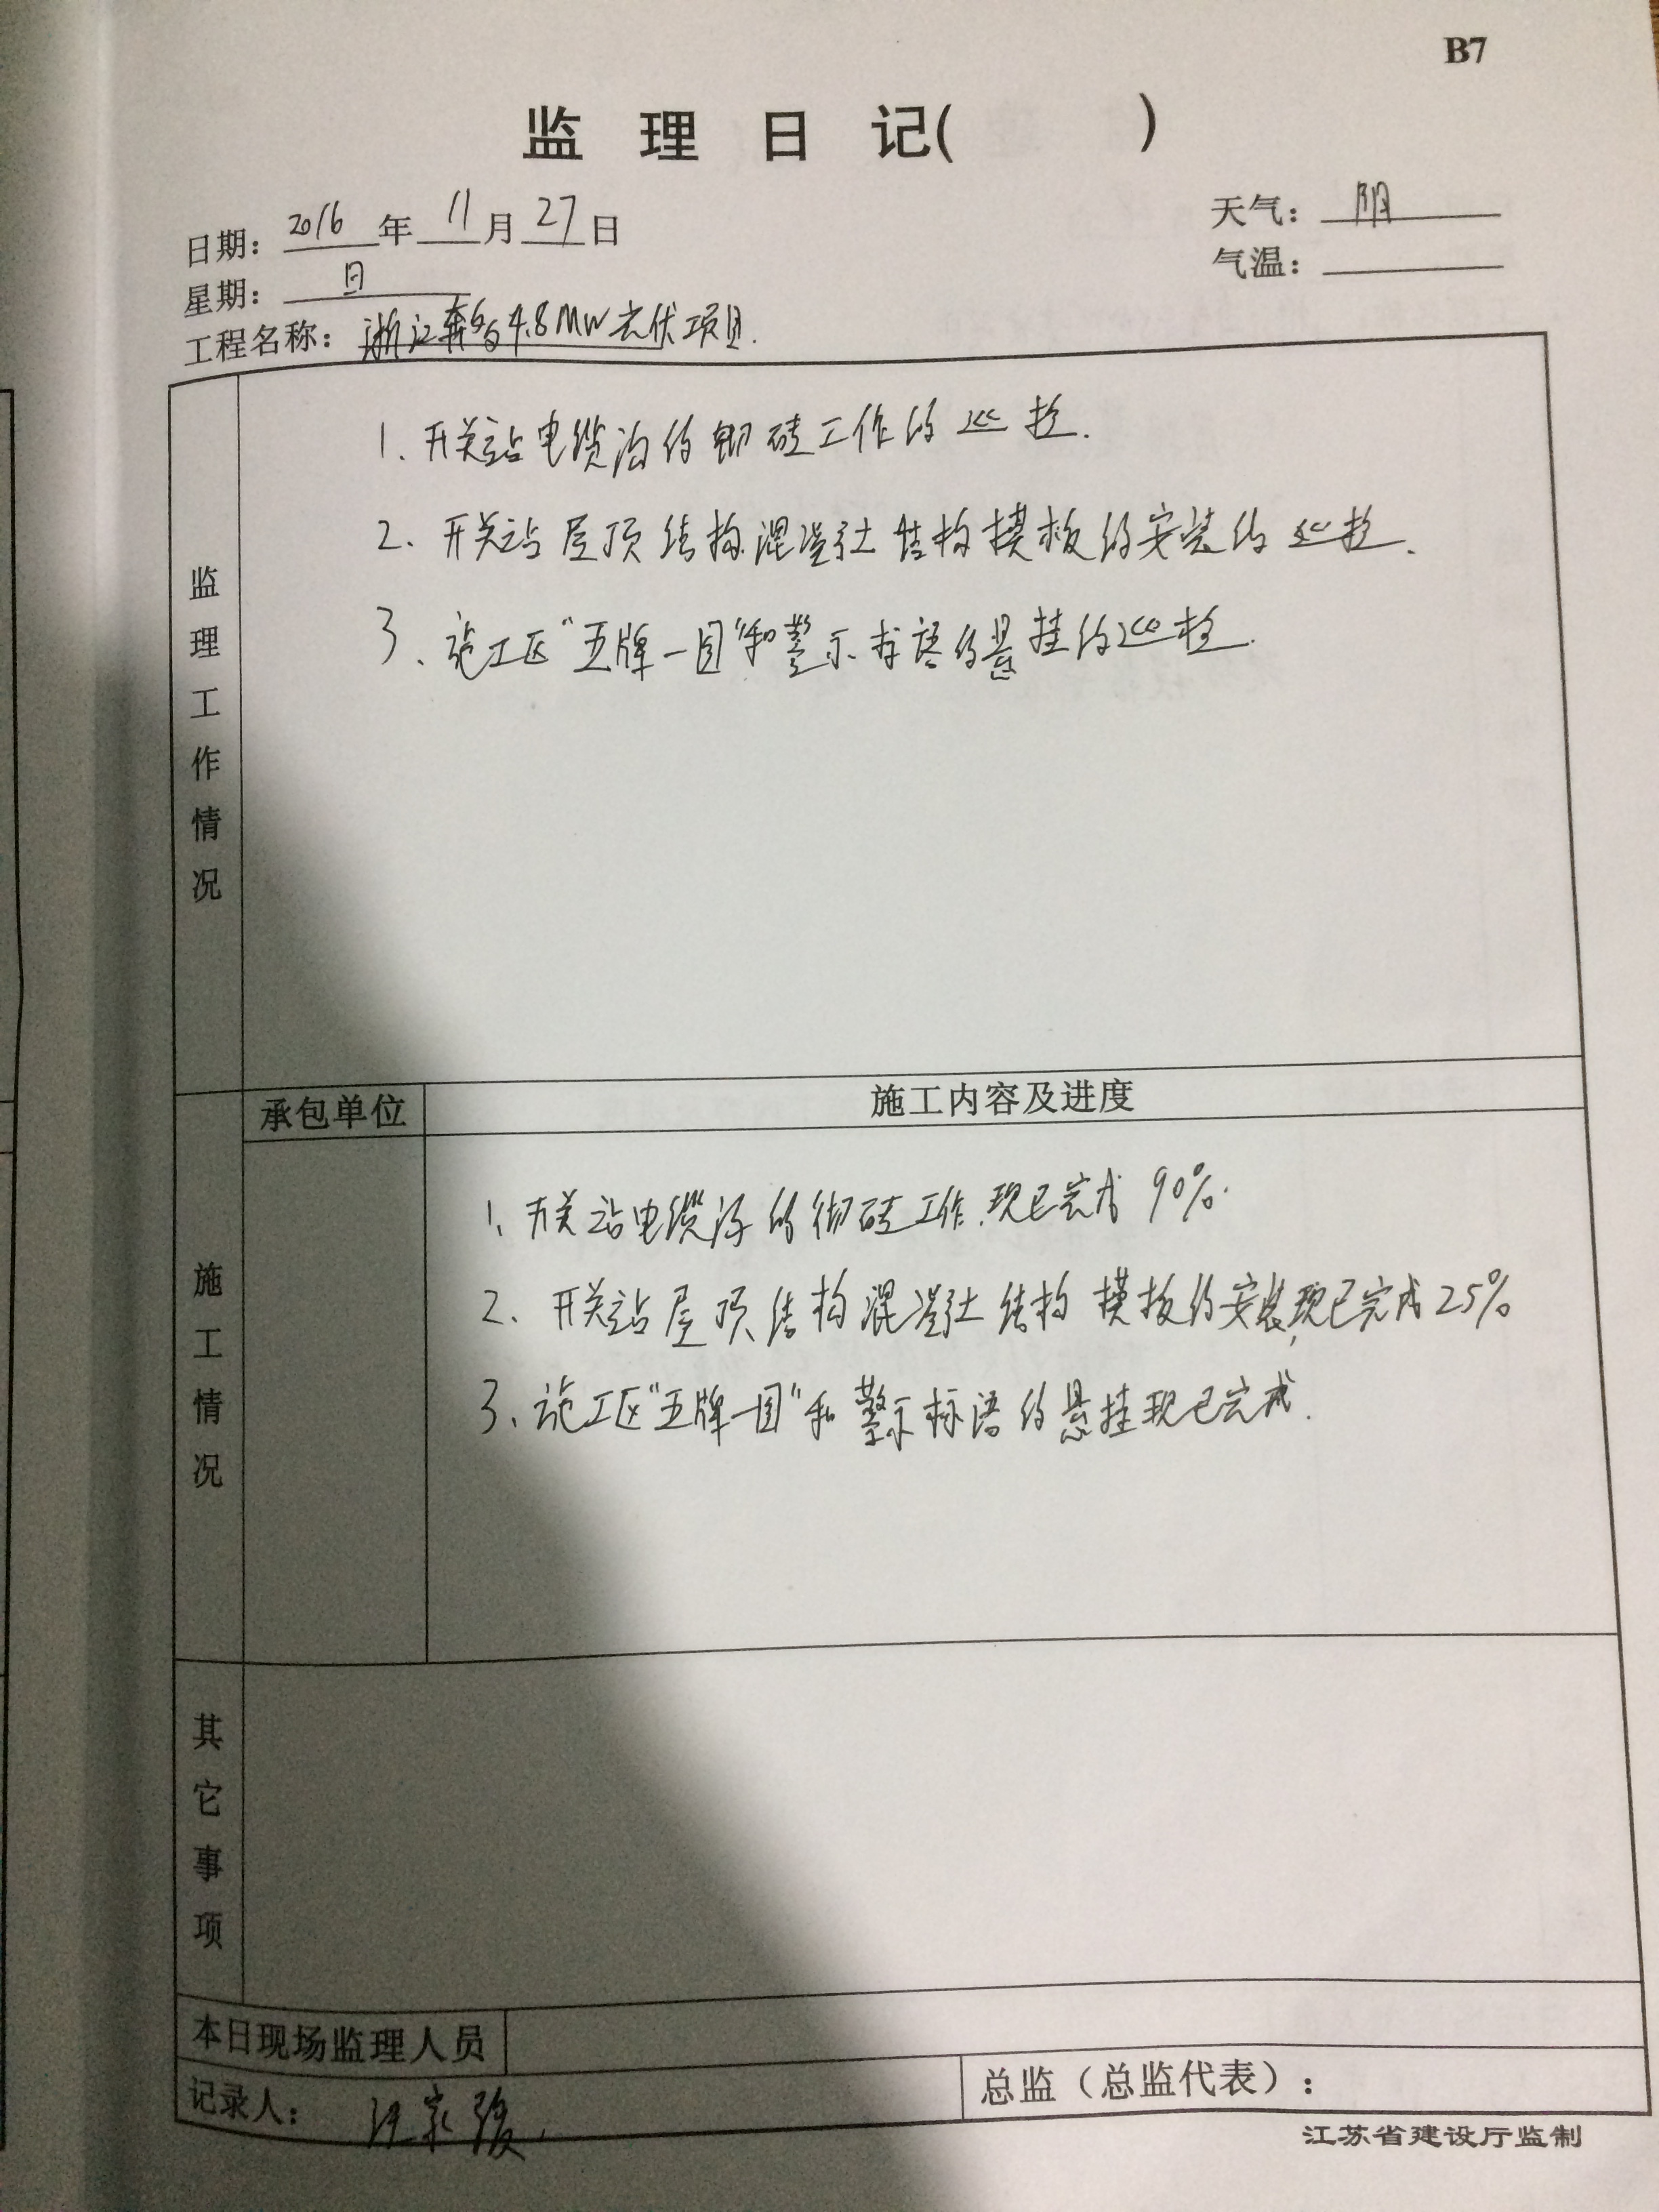 B7
监理日记( )
日期: 2016 年 11 月 27 日
天气: 阴
星期: 日
气温:
工程名称: 浙江奔 4.8MW光伏项目.
监理工作情况
1. 开关站电缆沟的砌砖工作的巡检.
2. 开关站屋顶结构混凝土结构模板的安装的巡检.
3、施工区“五牌一图”和警示标语的悬挂的巡检.
承包单位
施工内容及进度
施工情况
1、开关站电缆沟的砌砖工作.现已完成 90%.
2、开关站屋顶结构混凝土结构模板的安装,现已完成25%
3、施工区“五牌一图”和警示标语的悬挂现已完成.
其它事项
本日现场监理人员
记录人: 汪家
总监（总监代表）:
江苏省建设厅监制